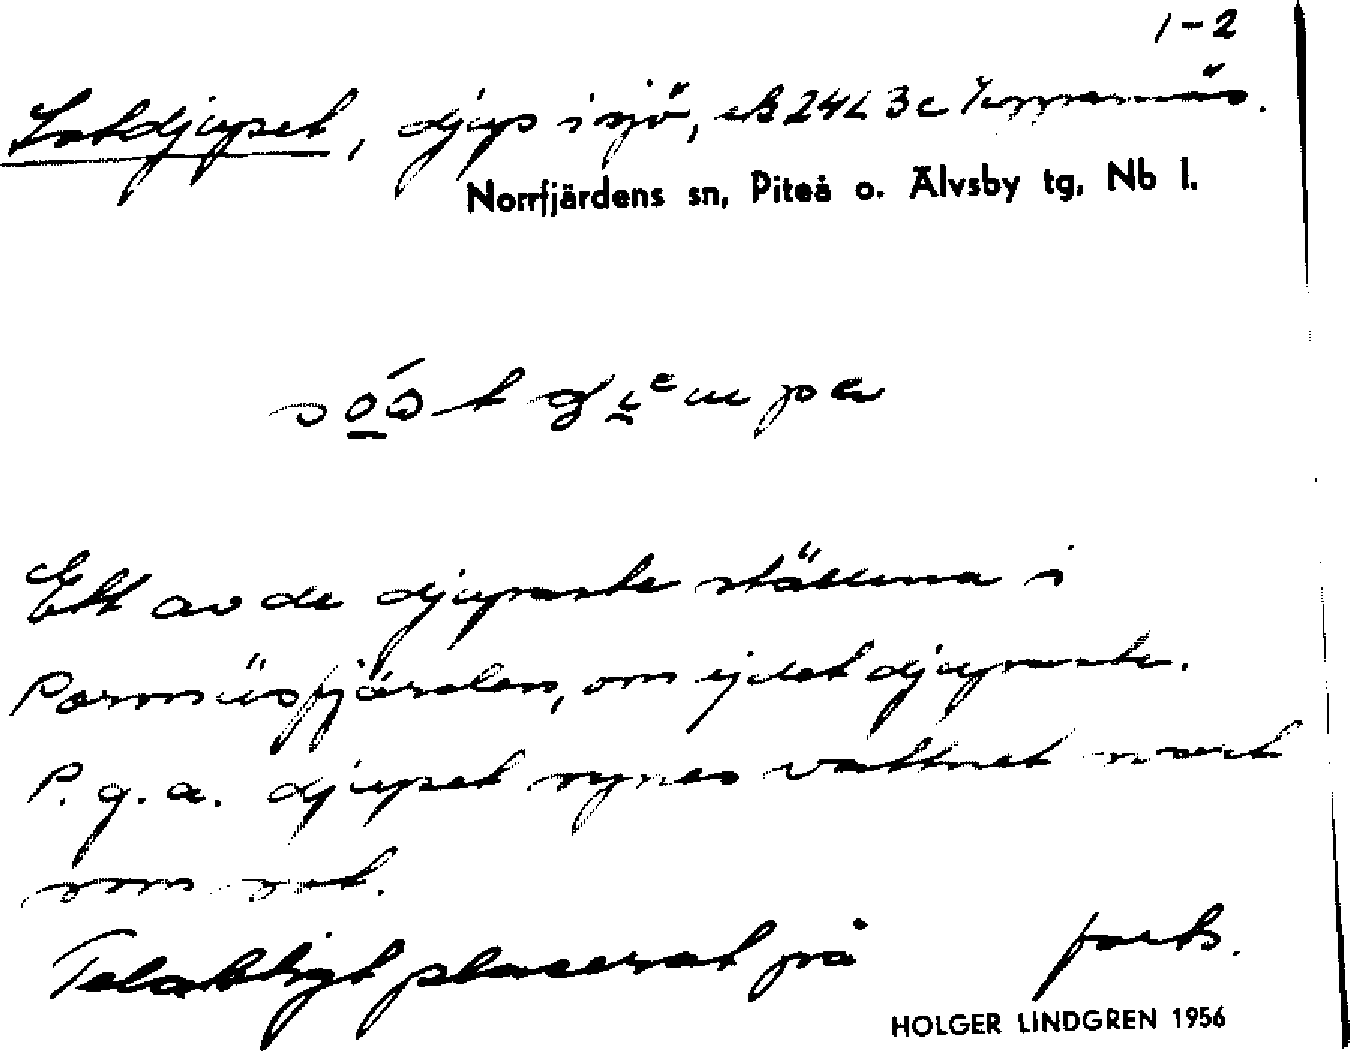 1-2
Sotdjupet, djup i sjö, ek 24L 3c
Norrfjärdens sn, Piteå o. Älvsby tg, Nb l.
Ett av de djupaste ställena i
Porsnäsfjärden, om ej det djupaste.
P.g.a. djupet synes vattnet svart
som sot.
Felaktigt placerat på
HOLGER LINDGREN 1956